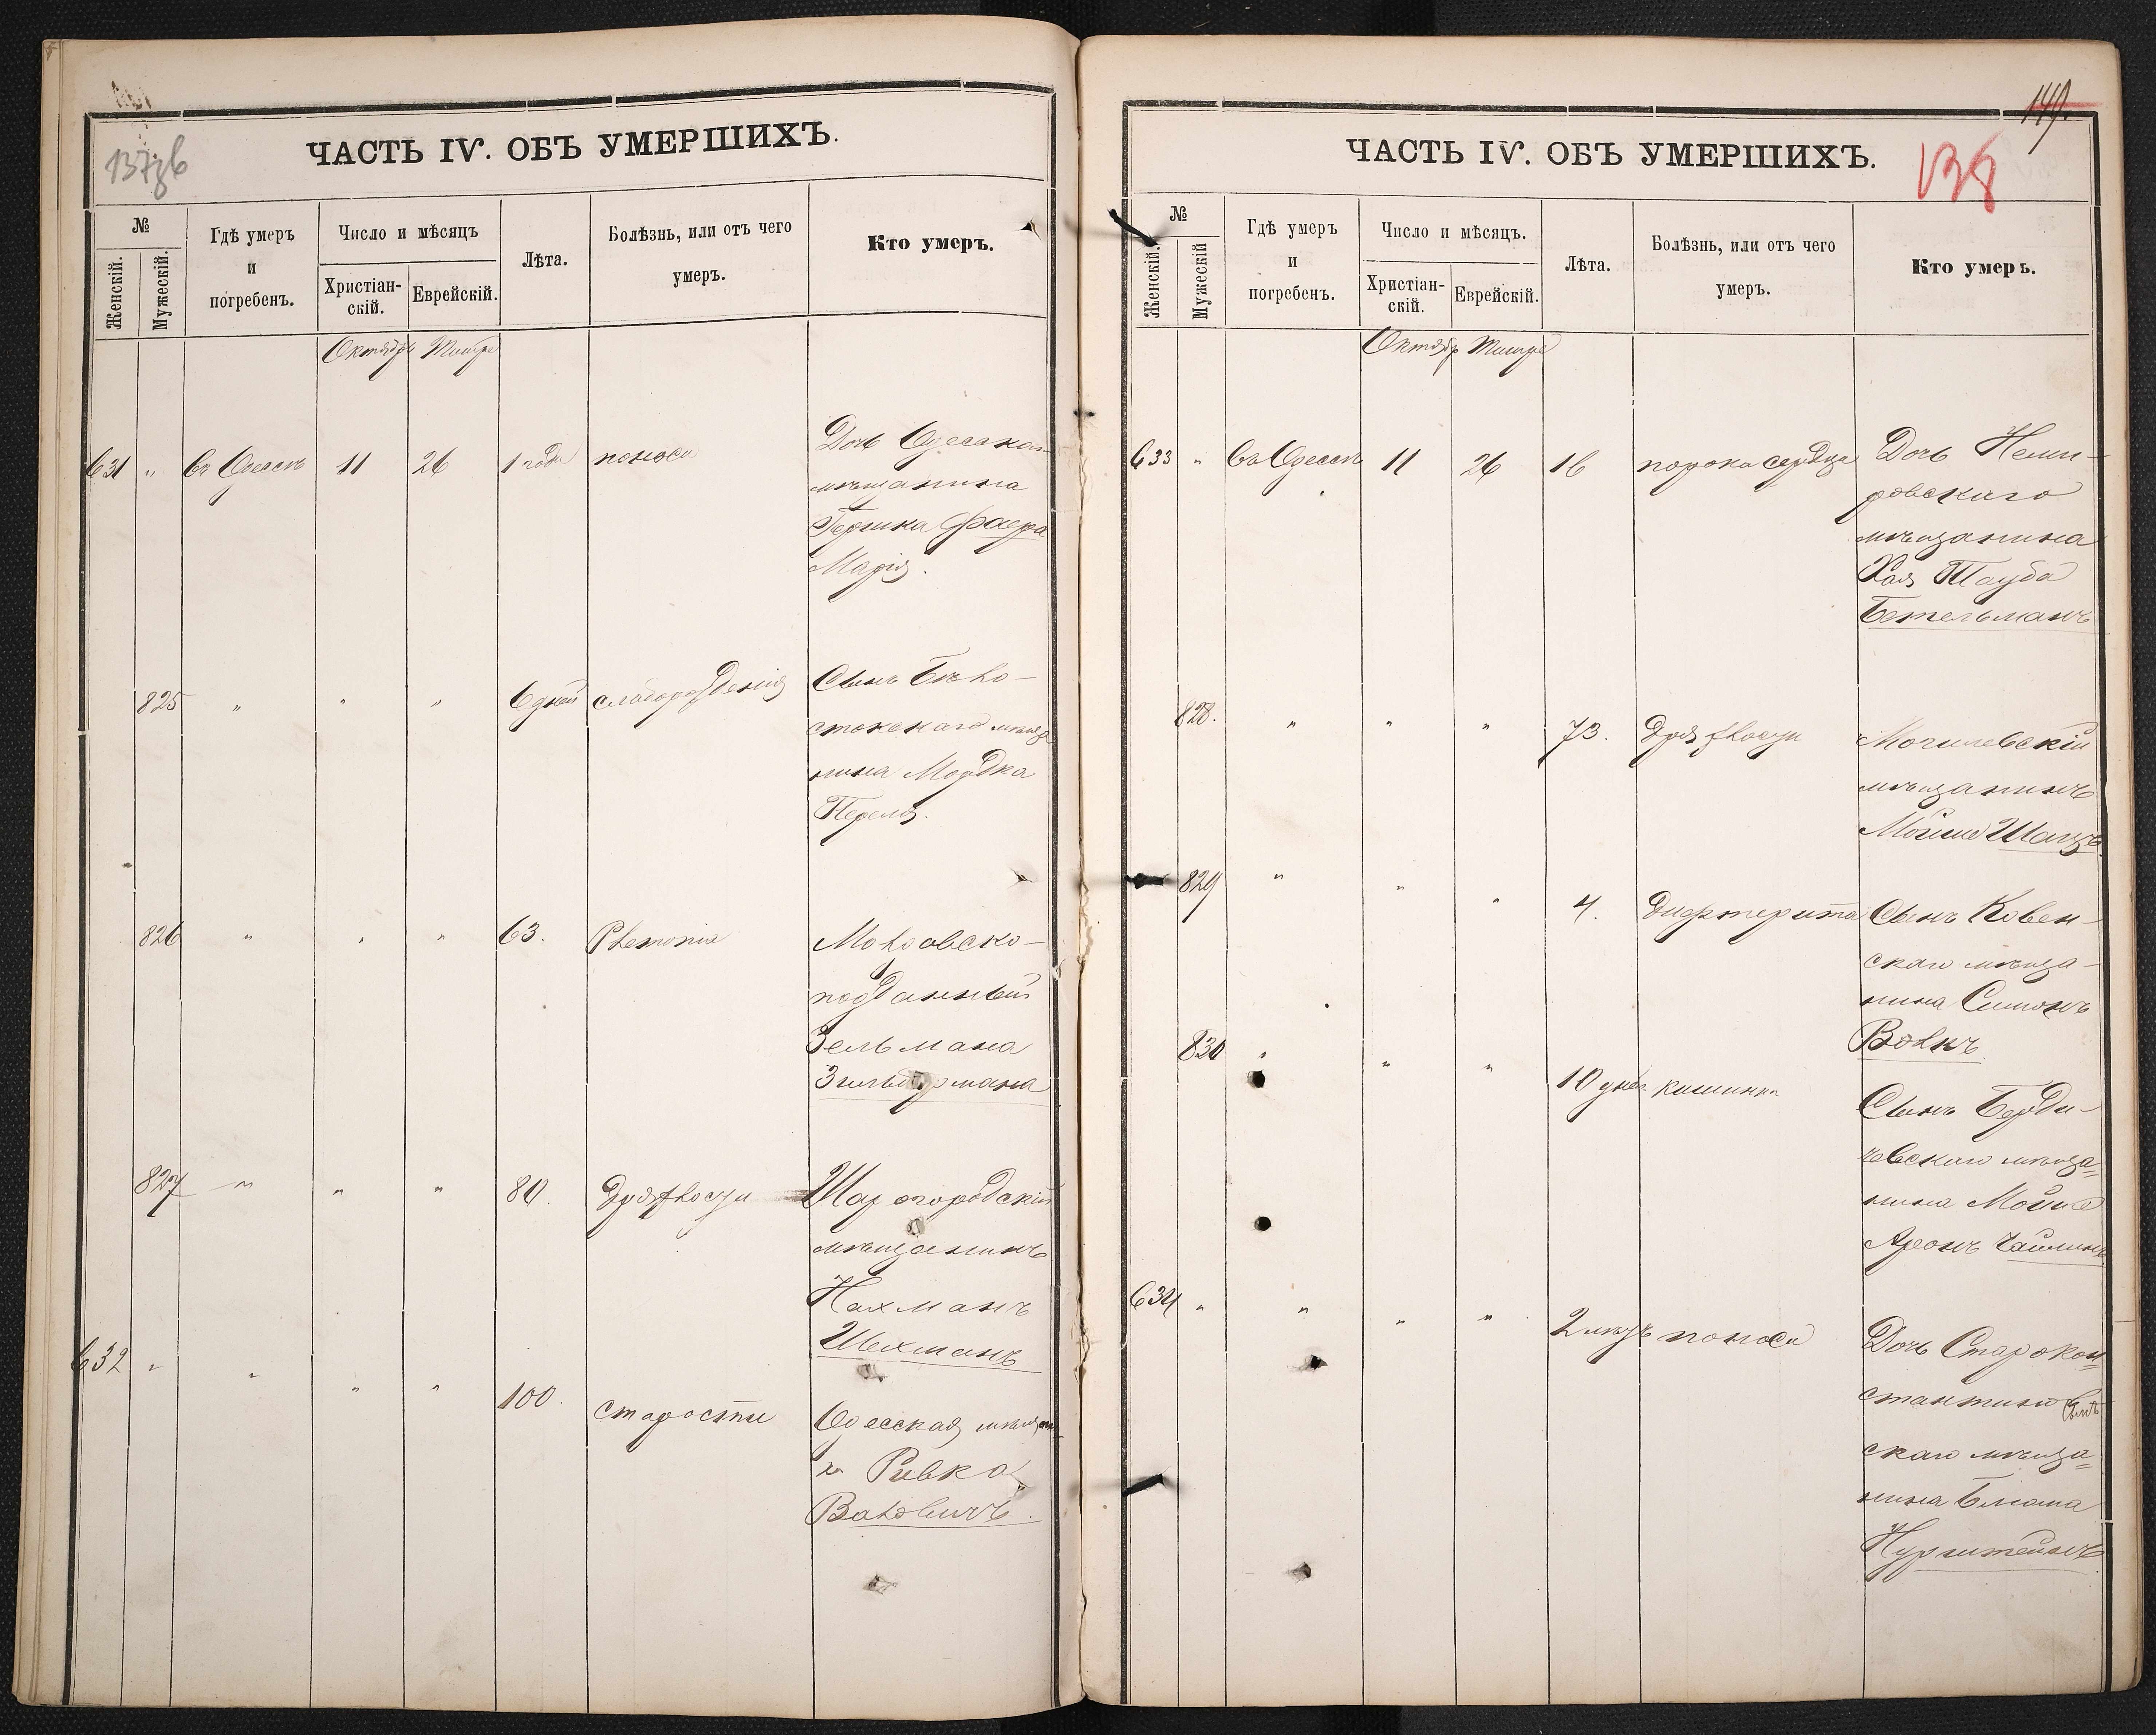 137об
ЧАСТЬ IV. ОБЪ УМЕРШИХЪ.
№
Женскій.
Мужескій.
Гдѣ умеръ
и
погребенъ.
Число и мѣсяцъ
Христіан-
скій.
Еврейскій.
Лѣта.
Болѣзнь, или отъ чего
умеръ.
Кто умеръ.
Октябрь Тишре
631 " въ Одессѣ 11 26 1 года поноса
Дочь Одесскаго
мѣщанина
Гершка
Марія.
825 " " " 6 дней слаборожденія
Сынъ
стокскаго мѣща
нина Мордка
826 " " " 63.
подданный
Зельмана
Зильбермана
827 " " " 80. Дряхлости
Шаргородскій
мѣщанинъ
Нахманъ
Шехманъ
632 " " " " 100. старости
Одесская
Ривка
149.
138
ЧАСТЬ IV. ОБЪ УМЕРШИХЪ.
№
Женскій.
Мужескій
Гдѣ умеръ
и
погребенъ.
Число и мѣсяцъ.
Христіан-
скій.
Еврейскій.
Лѣта.
Болѣзнь, или отъ чего
умеръ.
Кто умеръ.
Октябр Тишре
633 " въ Одессѣ 11 26 16 порока сердца
Дочь Неми-
ровскаго
мѣщанина
Хая Тауба
Бетельманъ
828. " " " 73. Дряхлости
Могилевскій
мѣщанинъ
Мойше
829 " " " 4. Дифтерита
Сынъ Ковен-
скаго мѣща-
нина Симонъ
Волкъ
830 " " " 10 дней
Сынъ Берди-
чевскаго мѣща=
нина Мойше
Аронъ
634 " " " " 2 мѣс. поноса
Дочь Старокон=
стантинов
скаго мѣща=
нина Блюма